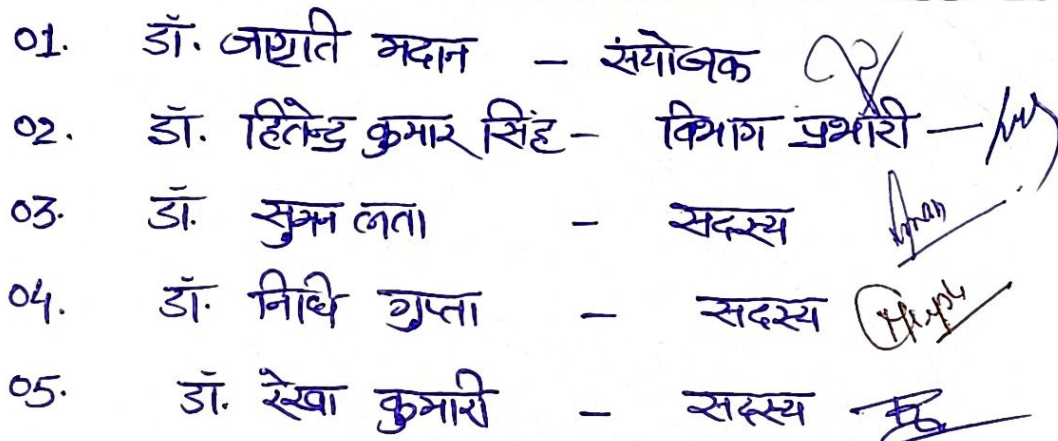 01. डॉ. जाग्रति मदान - संयोजक
02. डॉ. हितेन्द्र कुमार सिंह - विभाग प्रभारी -
03. डॉ. सुमन लता - सदस्य
04. डॉ. निधि गुप्ता - सदस्य
05. डॉ. रेखा कुमारी - सदस्य